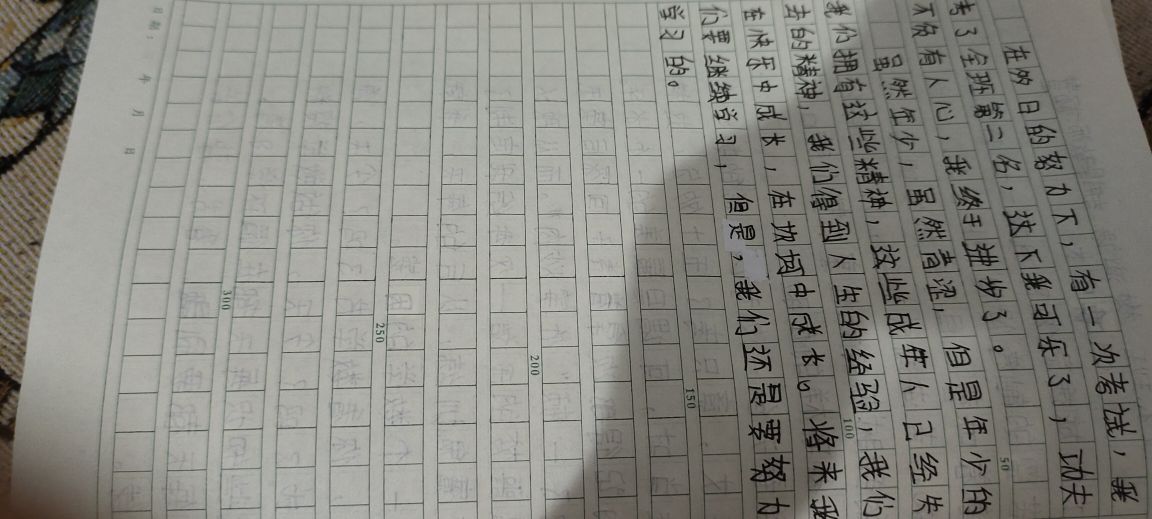 在日的努力下，有一次考试，我
考了全班第二名，这下我可乐了，功夫
不负有人心，我终于进步了。
50
虽然年少，虽然青涩，但是年少的
我们拥有这些精神，这些成年人已经失
100
去的精神，我们得到人生的经验，我们
在快乐中成长，在坎坷中成长。将来我
们要继续学习，但是，我们还是要努力
150
学习的。
200
250
300
日期： 年 月 日